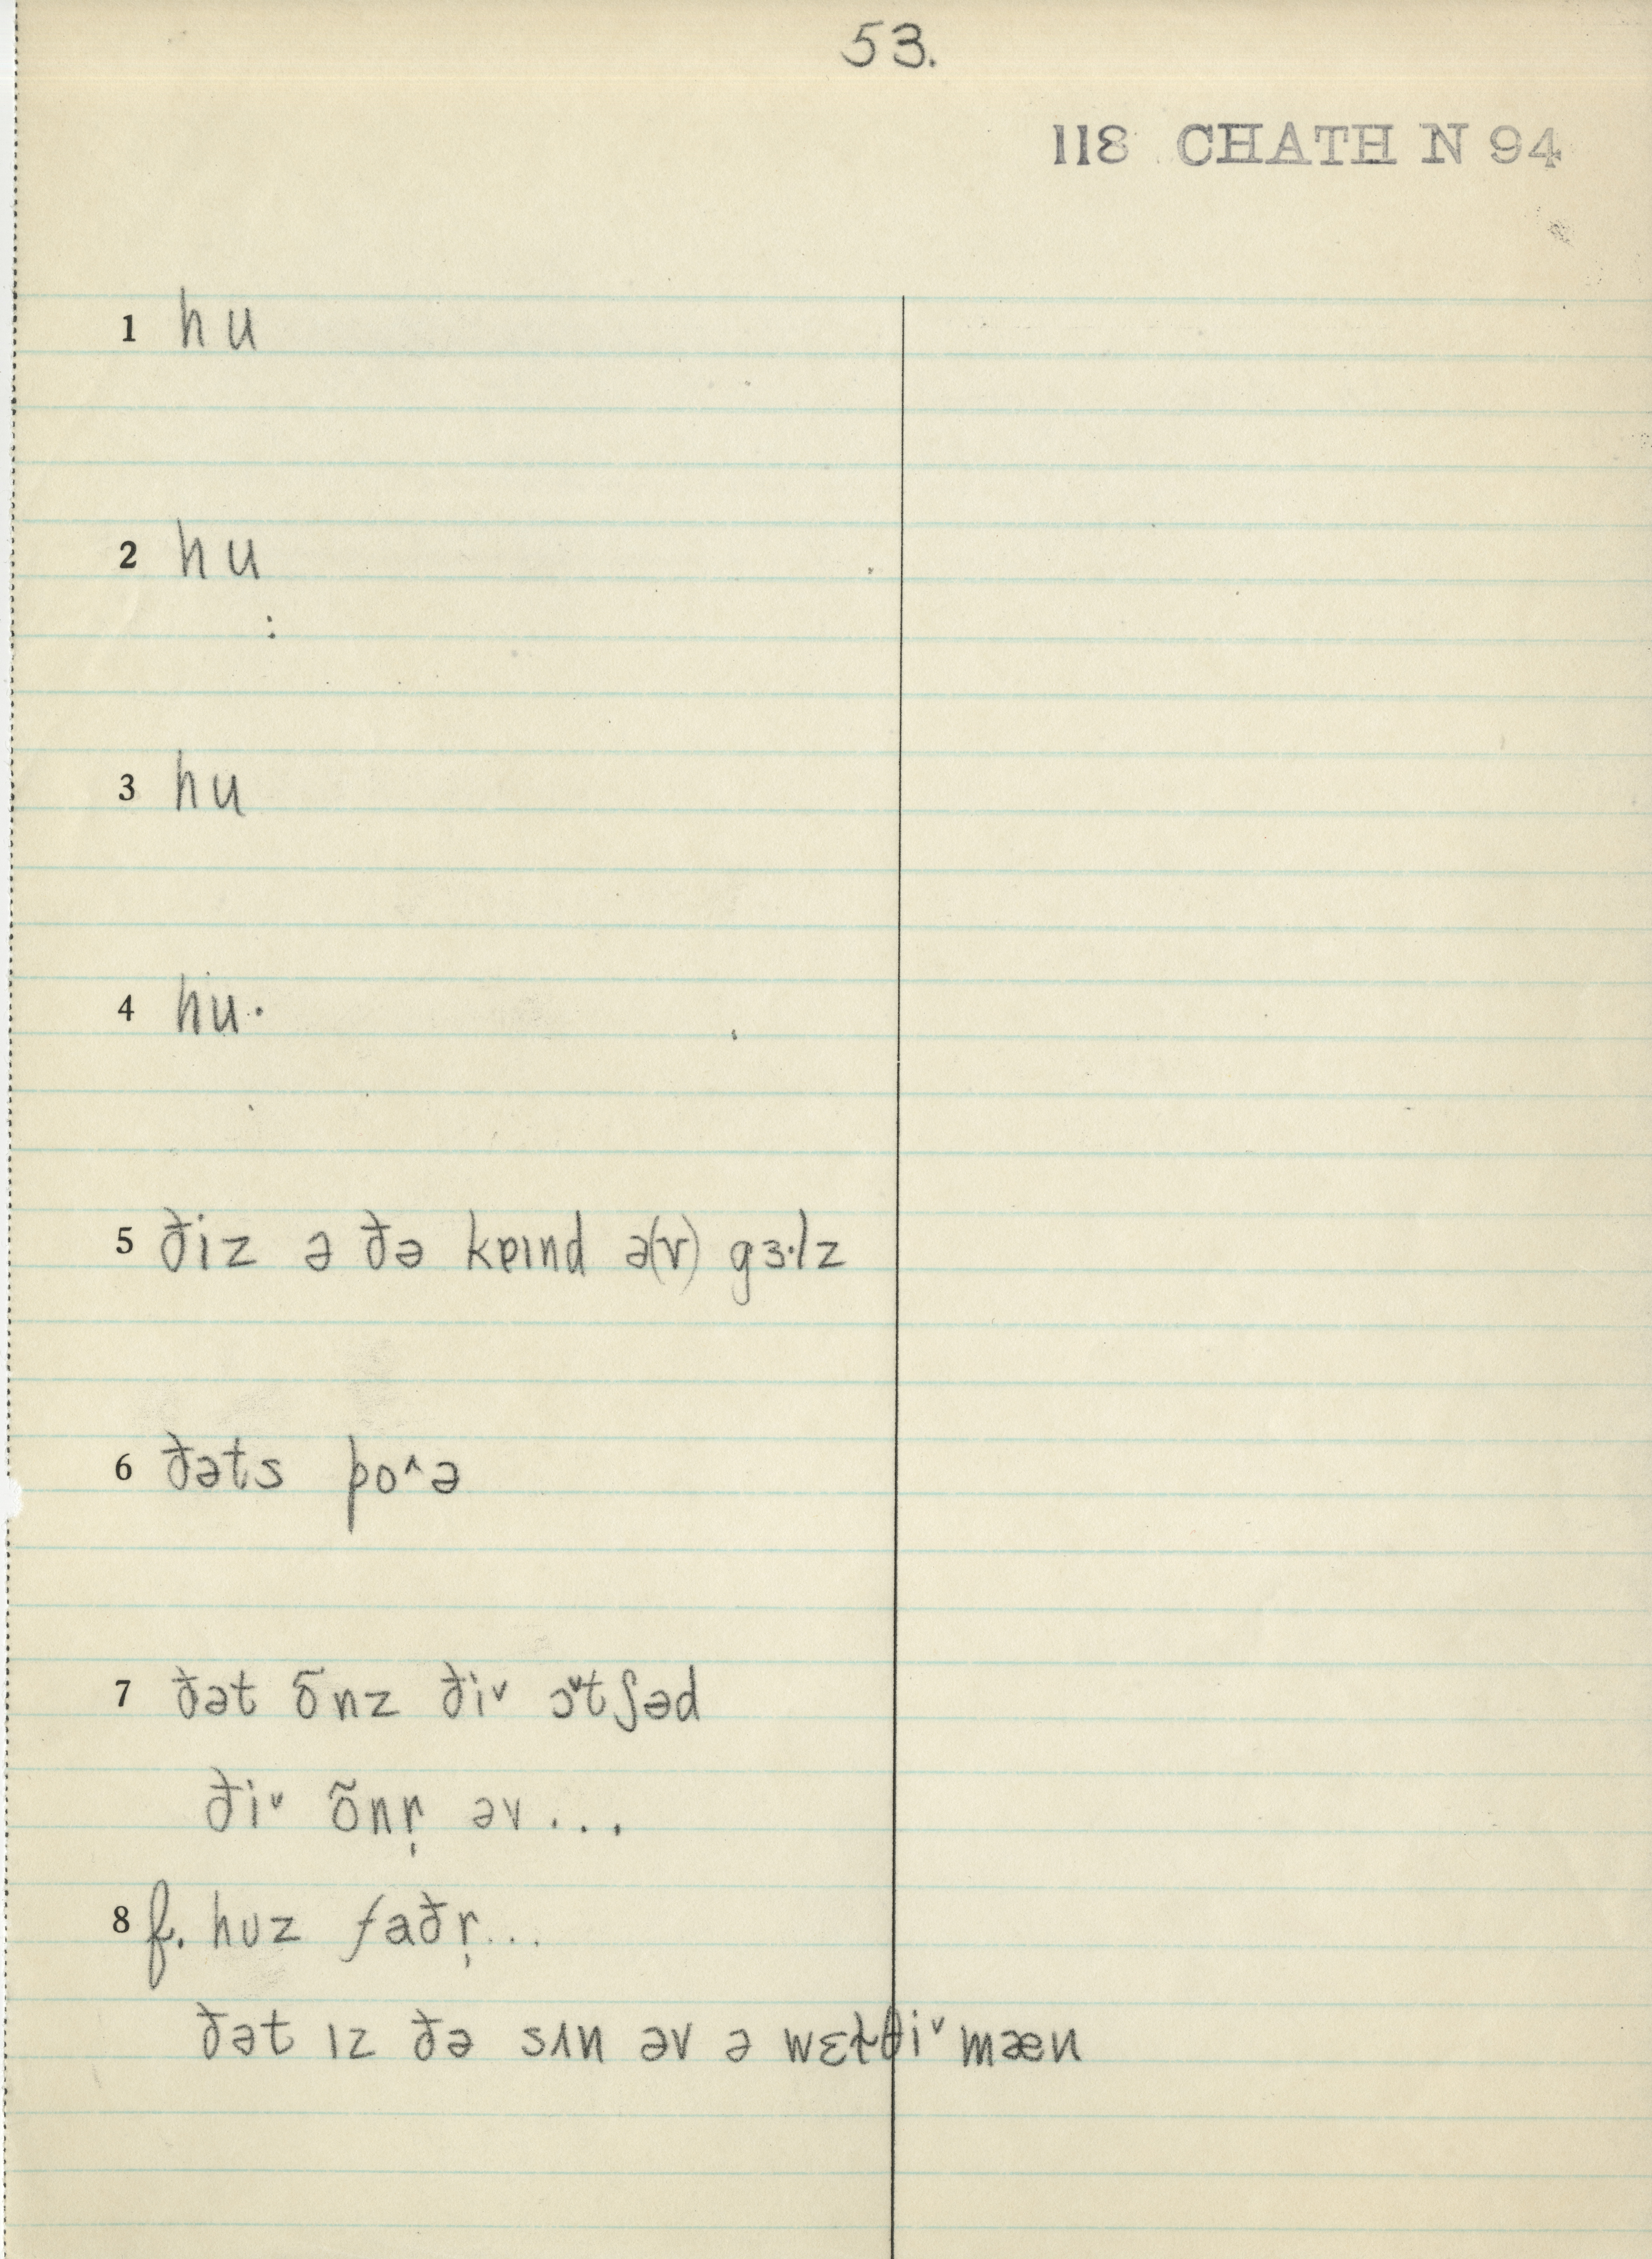 53.
118 CHATH N 94
1 hu
2 hu
3 hu
4 hu·
5 ðiz ə ðə kɐɪnd ə(v) gɜ·lz
6 ðəts po^ə
7 ðət õnz ði˅ ɔ˅tʃəd
ði˅ õnr̩ əv...
8 f. huz faðr̩...
ðət ɪz ðə sʌn əv ə wɛɫθi˅ mæn